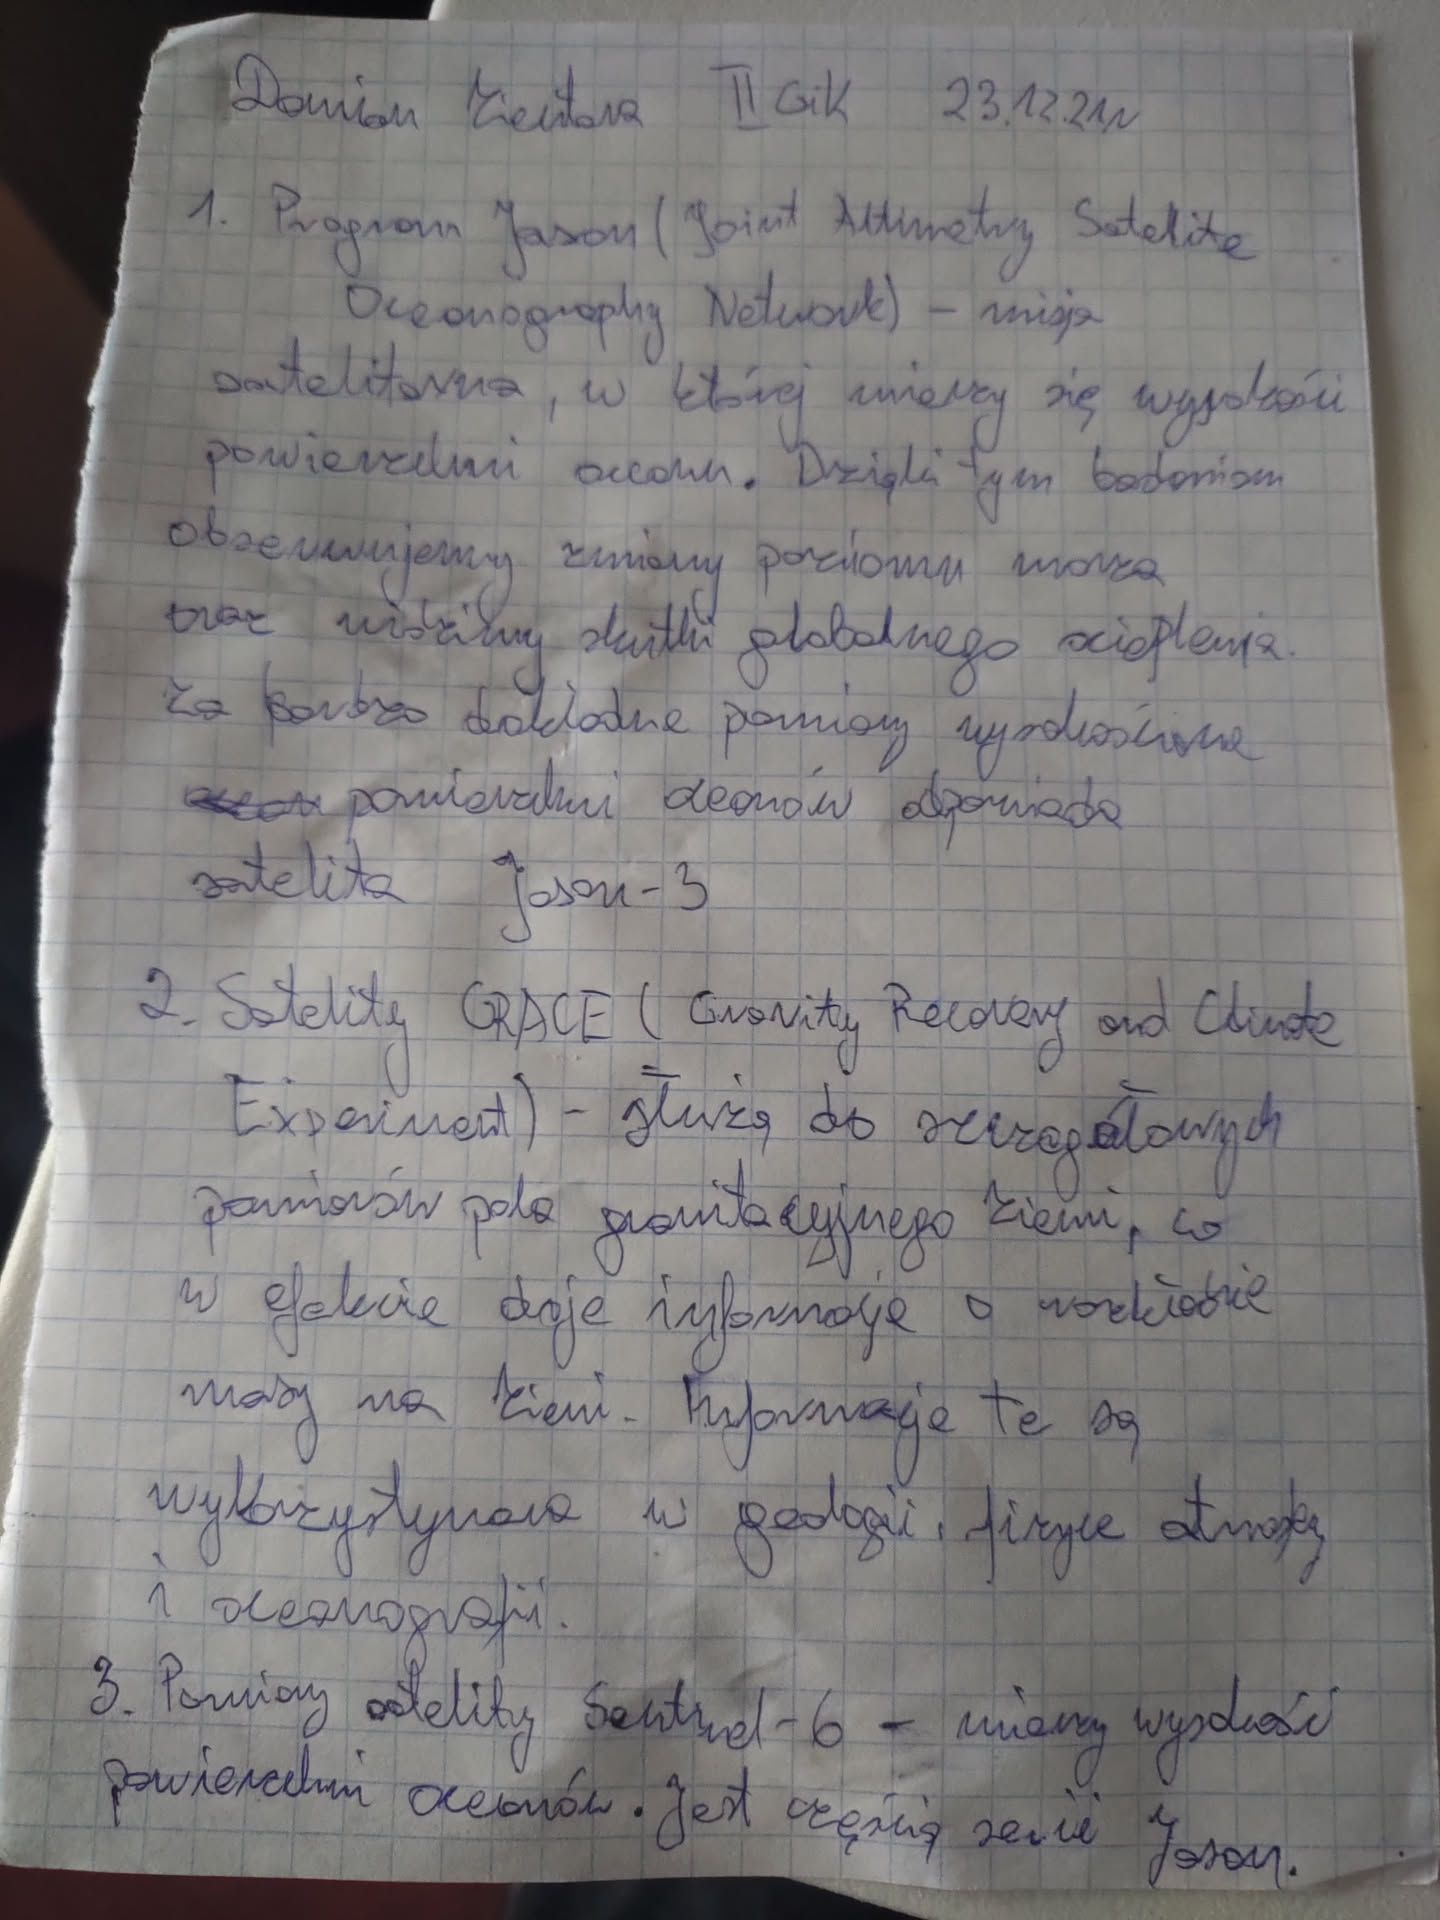 Damian Zientara II GiK 23.12.21r
1. Program Jason (Joint Altimetry Satelite
Oceanography Network) - misja
satelitarna, w której mierzy się wysokości
powierzchni oceanu. Dzięki tym badaniom
obserwujemy zmiany poziomu morza
oraz widzimy skutki globalnego ocieplenia.
Za bardzo dokładne pomiary wysokościowe
powierzchni oceanów odpowiada
satelita Jason-3
2. Satelity GRACE (Gravity Recovery and Climate
Experiment) - służą do szczegółowych
pomiarów pola grawitacyjnego Ziemi, co
w efekcie daje informacje o rozkładzie
masy na Ziemi. Informacje te są
wykorzystywane w geologii, fizyce atmosfery
i oceanografii.
3. Pomiary satelity Sentinel-6 - mierzy wysokości
powierzchni oceanów. Jest częścią serii Jason.